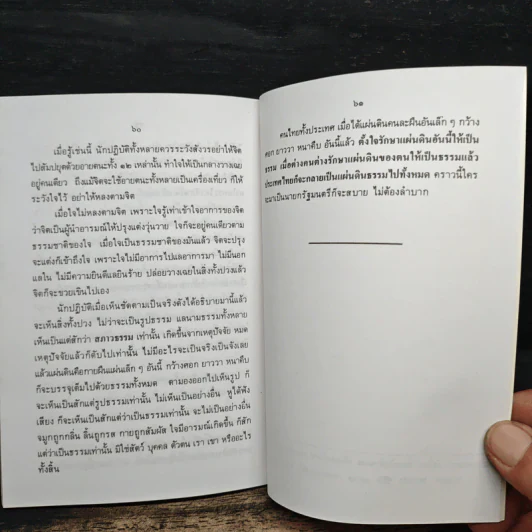 ๖๐
เมื่อรู้เช่นนี้ นักปฏิบัติทั้งหลายควรระวังสังวรอย่าให้จิต
ไปสัมปยุตด้วยอายตนะทั้ง ๑๒ เหล่านั้น ทำใจให้เป็นกลางวางเฉย
อยู่คนเดียว ถึงแม้จิตจะใช้อายตนะทั้งหลายเป็นเครื่องเที่ยว ก็ให้
ระวังใจไว้ อย่าให้หลงตามจิต
เมื่อใจไม่หลงตามจิต เพราะใจรู้เท่าเข้าใจอาการของจิต
ว่าจิตเป็นผู้นำอารมณ์ให้ปรุงแต่งวุ่นวาย ใจก็จะอยู่คนเดียวตาม
ธรรมชาติของใจ เมื่อใจเป็นธรรมชาติของมันแล้ว จิตจะปรุง
จะแต่งก็เข้าถึงใจ เพราะใจไม่มีอาการไปแลอาการมา ไม่มีนอก
แลใน ไม่มีความยินดีแลยินร้าย ปล่อยวางเฉยในสิ่งทั้งปวงแล้ว
จิตก็จะชวยเขินไปเอง
นักปฏิบัติเมื่อเห็นชัดตามเป็นจริงดังได้อธิบายมานี้แล้ว
จะเห็นสิ่งทั้งปวง ไม่ว่าจะเป็นรูปธรรม แลนามธรรมทั้งหลาย
เห็นเป็นแต่สักว่า สภาวธรรม เท่านั้น เกิดขึ้นจากเหตุปัจจัย หมด
เหตุปัจจัยแล้วก็ดับไปเท่านั้น ไม่มีอะไรจะเป็นจริงเป็นจังเลย
แล้วแผ่นดินคือกายผืนแผ่นเล็ก ๆ อันนี้ กว้างศอก ยาววา หนาคืบ
ก็จะบรรจุเต็มไปด้วยธรรมทั้งหมด ตามองออกไปเห็นรูป ก็
จะเห็นเป็นสักแต่รูปธรรมเท่านั้น ไม่เห็นเป็นอย่างอื่น หูได้ฟัง
เสียง ก็จะเห็นเป็นสักแต่ว่าเป็นธรรมเท่านั้น จะไม่เป็นอย่างอื่น
จมูกถูกกลิ่น ลิ้นถูกรส กายถูกสัมผัส ใจมีอารมณ์เกิดขึ้น ก็สัก
แต่ว่าเป็นธรรมเท่านั้น มิใช่สัตว์ บุคคล ตัวตน เรา เขา หรืออะไร
ทั้งสิ้น
๖๑
คนไทยทั้งประเทศ เมื่อได้แผ่นดินคนละผืนอันเล็ก ๆ กว้าง
ศอก ยาววา หนาคืบ อันนี้แล้ว ตั้งใจรักษาแผ่นดินอันนี้ให้เป็น
ธรรม เมื่อต่างคนต่างรักษาแผ่นดินของตนให้เป็นธรรมแล้ว
ประเทศไทยก็จะกลายเป็นแผ่นดินธรรมไปทั้งหมด คราวนี้ใคร
จะมาเป็นนายกรัฐมนตรีก็จะสบาย ไม่ต้องลำบาก